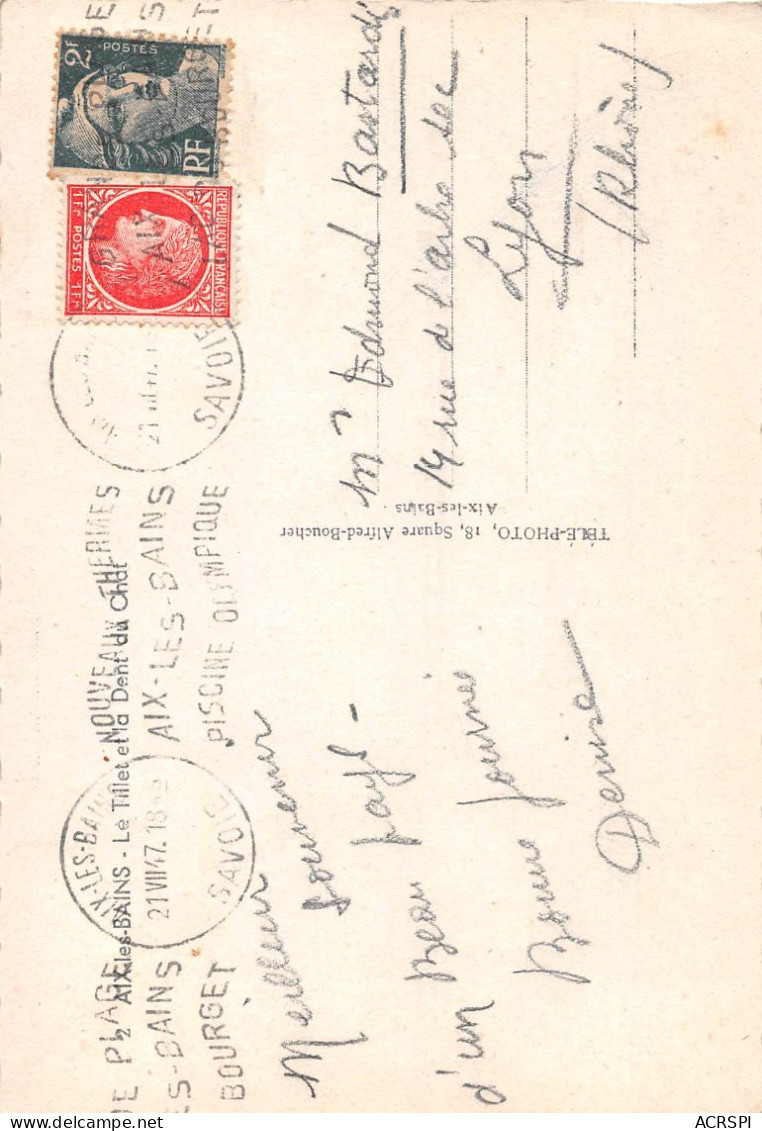 2 AIX-les-BAINS - Le Tillet et la Dent du Chat
AIX-LES-BAINS
21 VII 47. 18
SAVOIE
NOUVEAUX THERMES
AIX-LES-BAINS
PISCINE OLYMPIQUE
DE PLAGE
ES-BAINS
BOURGET
SAVOIE
2F
POSTES
RF
REPUBLIQUE FRANÇAISE
1Fr POSTES 1Fr
Meilleur
souvenir
d'un Beau pays -
Bonne journée
Denise
TÉLÉ-PHOTO, 18, Square Alfred-Boucher
Aix-les-Bains
Mr Edmond Bastard
14 rue de l'arbre sec
Lyon
(Rhône)
delcampe.net
ACRSPI